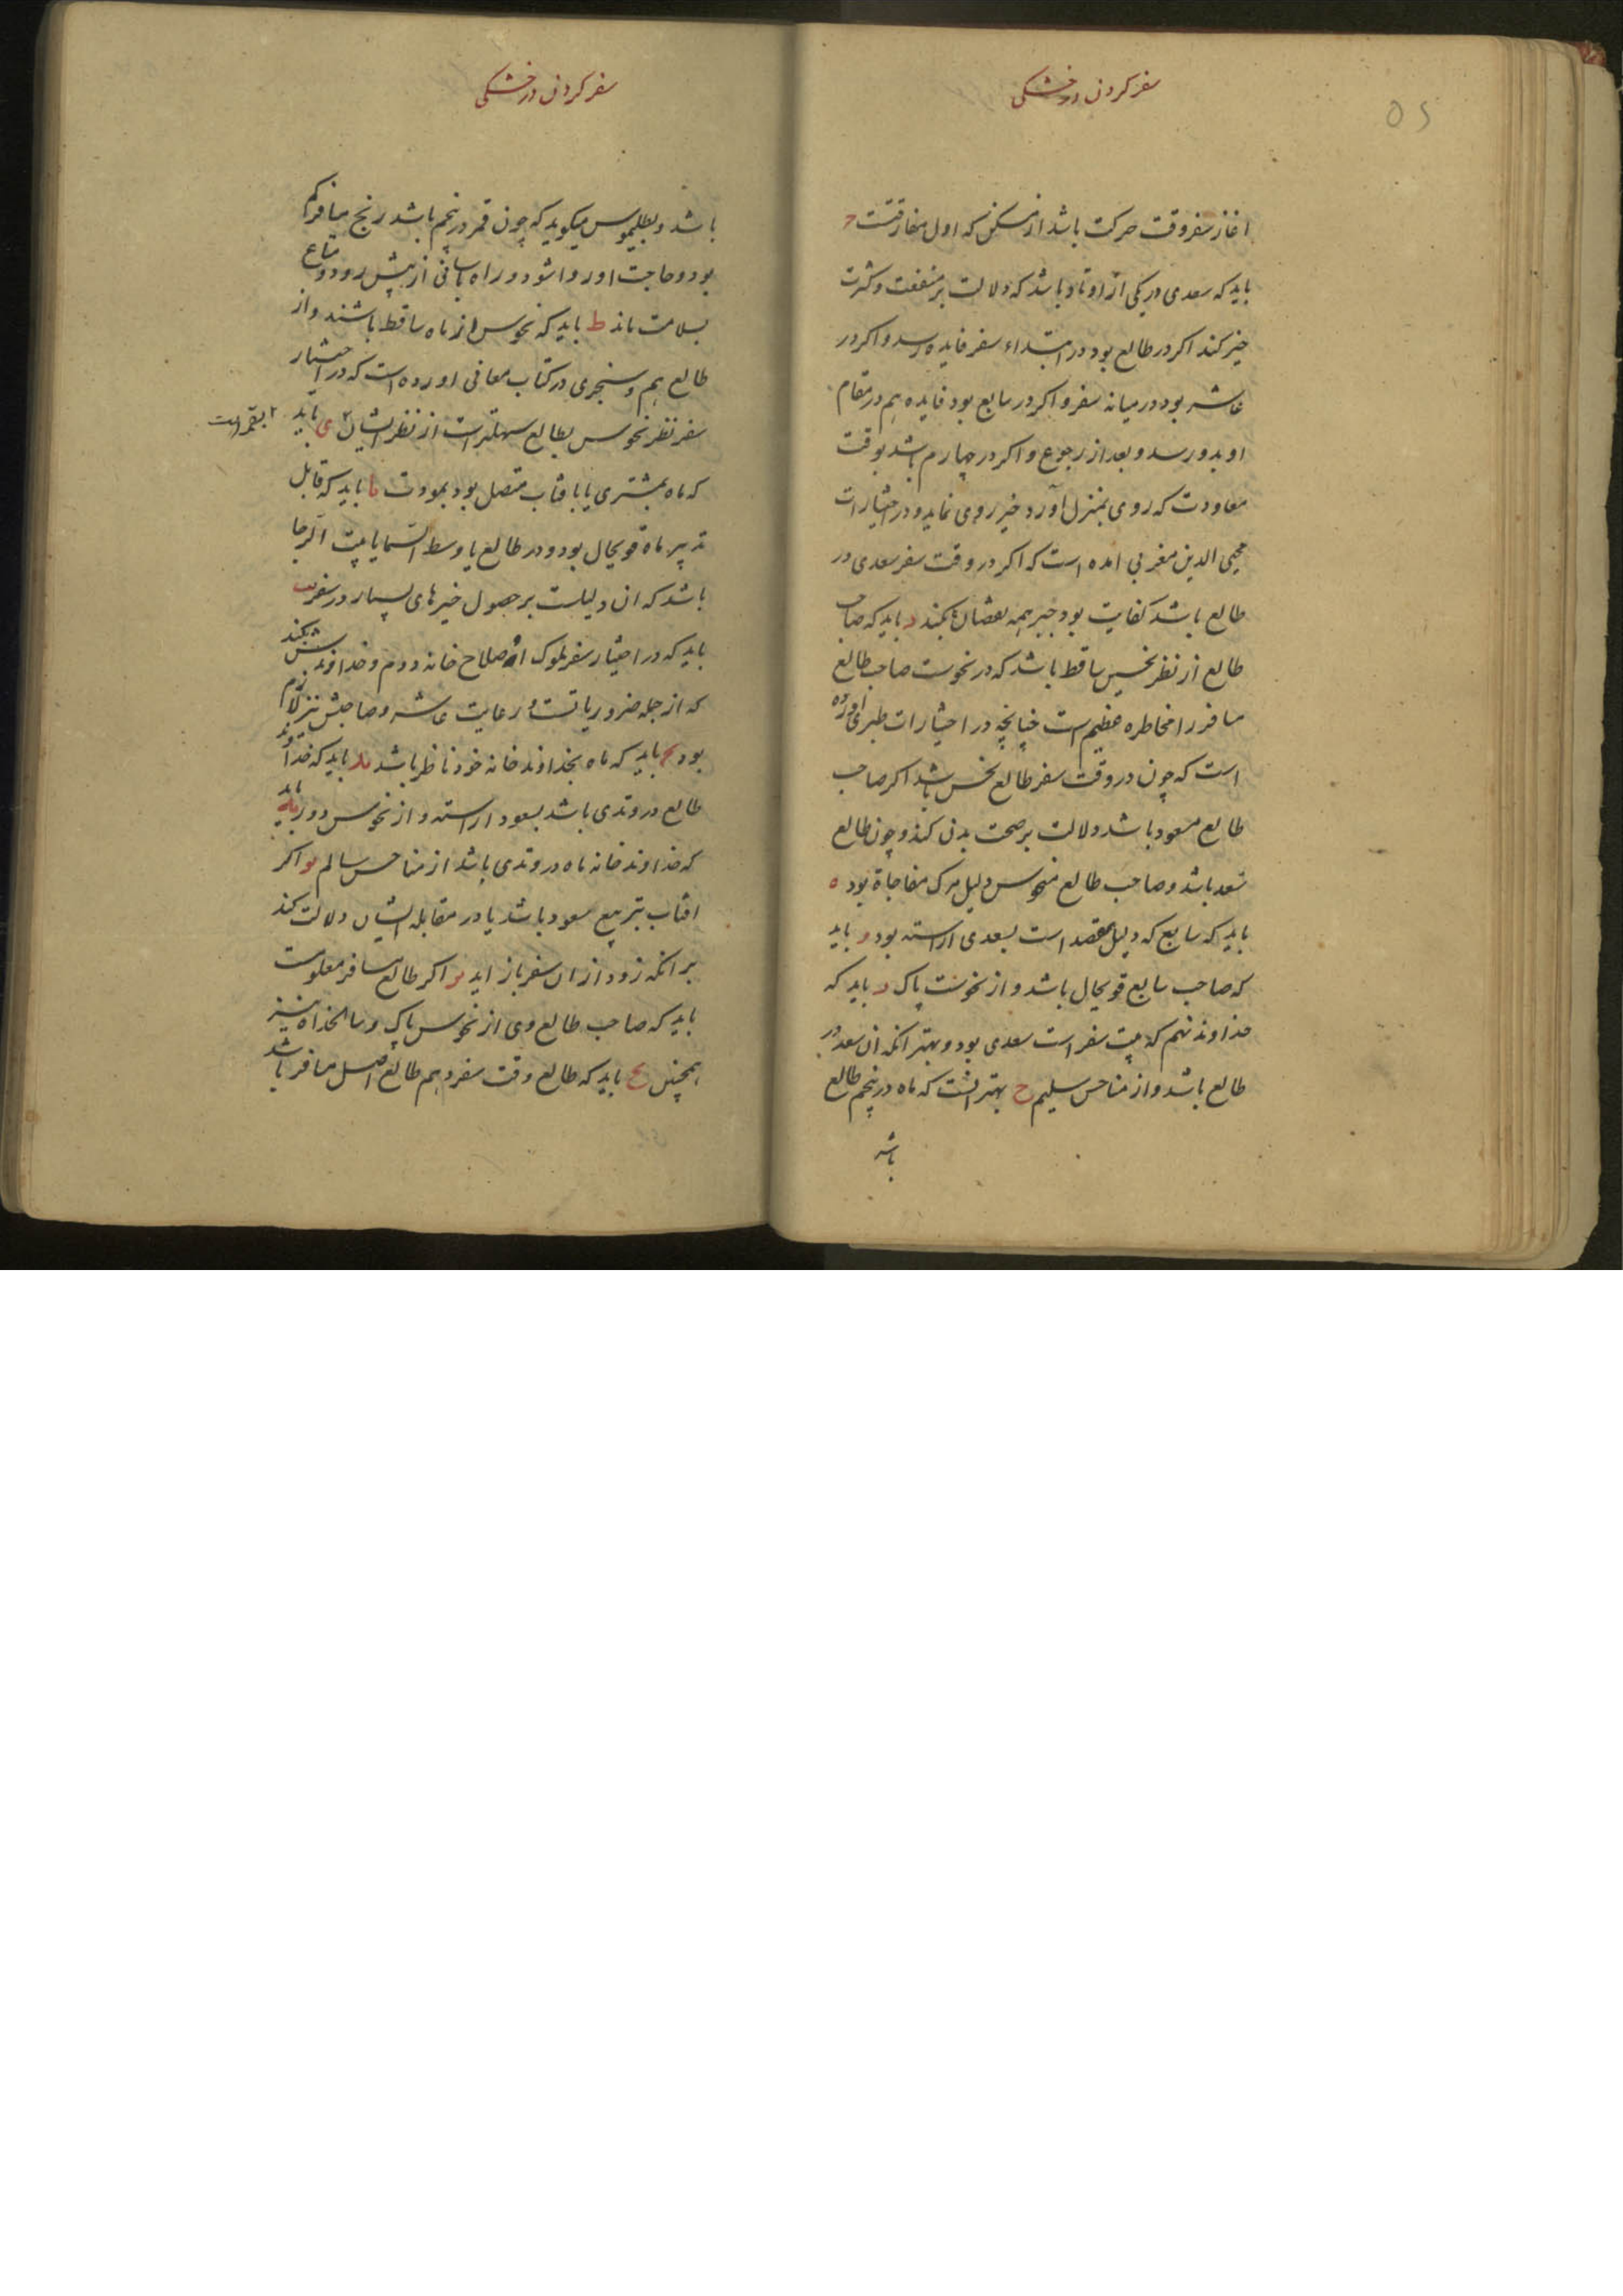 سفر کردن در خشکی
٥٢
اغاز سفر وقت حرکت باشد از مسکن که اول مفارقتست ح
باید که سعدی در یکی از اوتاد باشد که دلالت بر منفعت و کثرت
خیر کند اکر در طالع بود در ابتداء سفر فایده رسد و اکر در
عاشر بود در میانه سفر و اکر در سابع بود فایده هم در مقام
او بدو رسد و بعد از رجوع و اکر در چهارم باشد بوقت
معاودت که روی بمنزل آورد خیر روی نماید و در اختیارات
محیی الدین مغربی امده است که اکر در وقت سفر سعدی در
طالع باشد کفایت بود جبر همه نقصان‌ها بکند د باید که صاحب
طالع از نظر نحس ساقط باشد که در نحوست صاحب طالع
مسافر را مخاطره عظیم است چنانچه در اختیارات طبری اورده
است که چون در وقت سفر طالع نحس باشد اکر صاحب
طالع مسعود باشد دلالت بر صحت بدن کند و چون طالع
سعد باشد و صاحب طالع منحوس دلیل مرک مفاجاة بود ه
باید که سابع که دلیل مقصد است بسعدی اراسته بود و باید
که صاحب سابع قویحال باشد و از نحوست پاک ر باید که
خداوند نهم که بیت سفر است سعدی بود و بهتر انکه ان سعد در
طالع باشد و از مناحس سلیم ح بهتر انست که ماه در پنجم طالع
باشد
سفر کردن در خشکی
باشد و بطلیموس میکوید که چون قمر در پنجم باشد رنج مسافر کم
بود و حاجت او روا شود و راه باسانی از پیش رود و متاع
بسلامت ماند ط باید که نحوس از ماه ساقط باشند و از
طالع هم و سنجری در کتاب معانی اورده است که در اختیار
سفر نظر نحوس بطالع سهلتر است از نظر ایشان ۲ ی باید
۲ بقمر است
که ماه بمشتری یا بافتاب متصل بود بمودت یا باید که قابل
تدبیر ماه قویحال بود و در طالع یا وسط السما یا بیت الرجا
باشد که ان دلیلست بر حصول خیرهای بسیار در سفر یب
باید که در اختیار سفر ملوک اصلاح خانه دوم و خداوندش بکند
که از جمله ضروریاتست و رعایت عاشر و صاحبش نیز لازم
بود یج باید که ماه بخداوند خانه خود ناظر باشد ید باید که خداوند
طالع در وتدی باشد بسعود اراسته و از نحوس دور یه باید
که خداوند خانه ماه در وتدی باشد از مناحس سالم یو اکر
افتاب بتربیع سعود باشد یا در مقابله ایشان دلالت کند
بر انکه زود از ان سفر باز اید یز اکر طالع مسافر معلومست
باید که صاحب طالع وی از نحوس پاک و سالخداه نیز
همچنین یح باید که طالع وقت سفر هم طالع اصل مسافر باشد